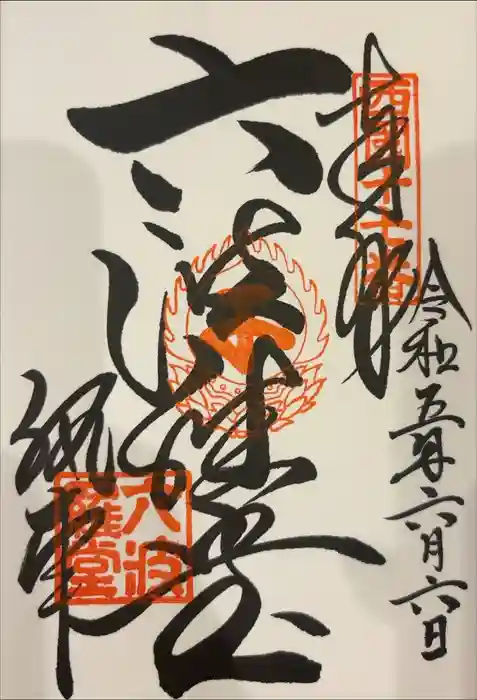 西國十七番
奉拝
令和五年六月六日
六波羅堂
執事